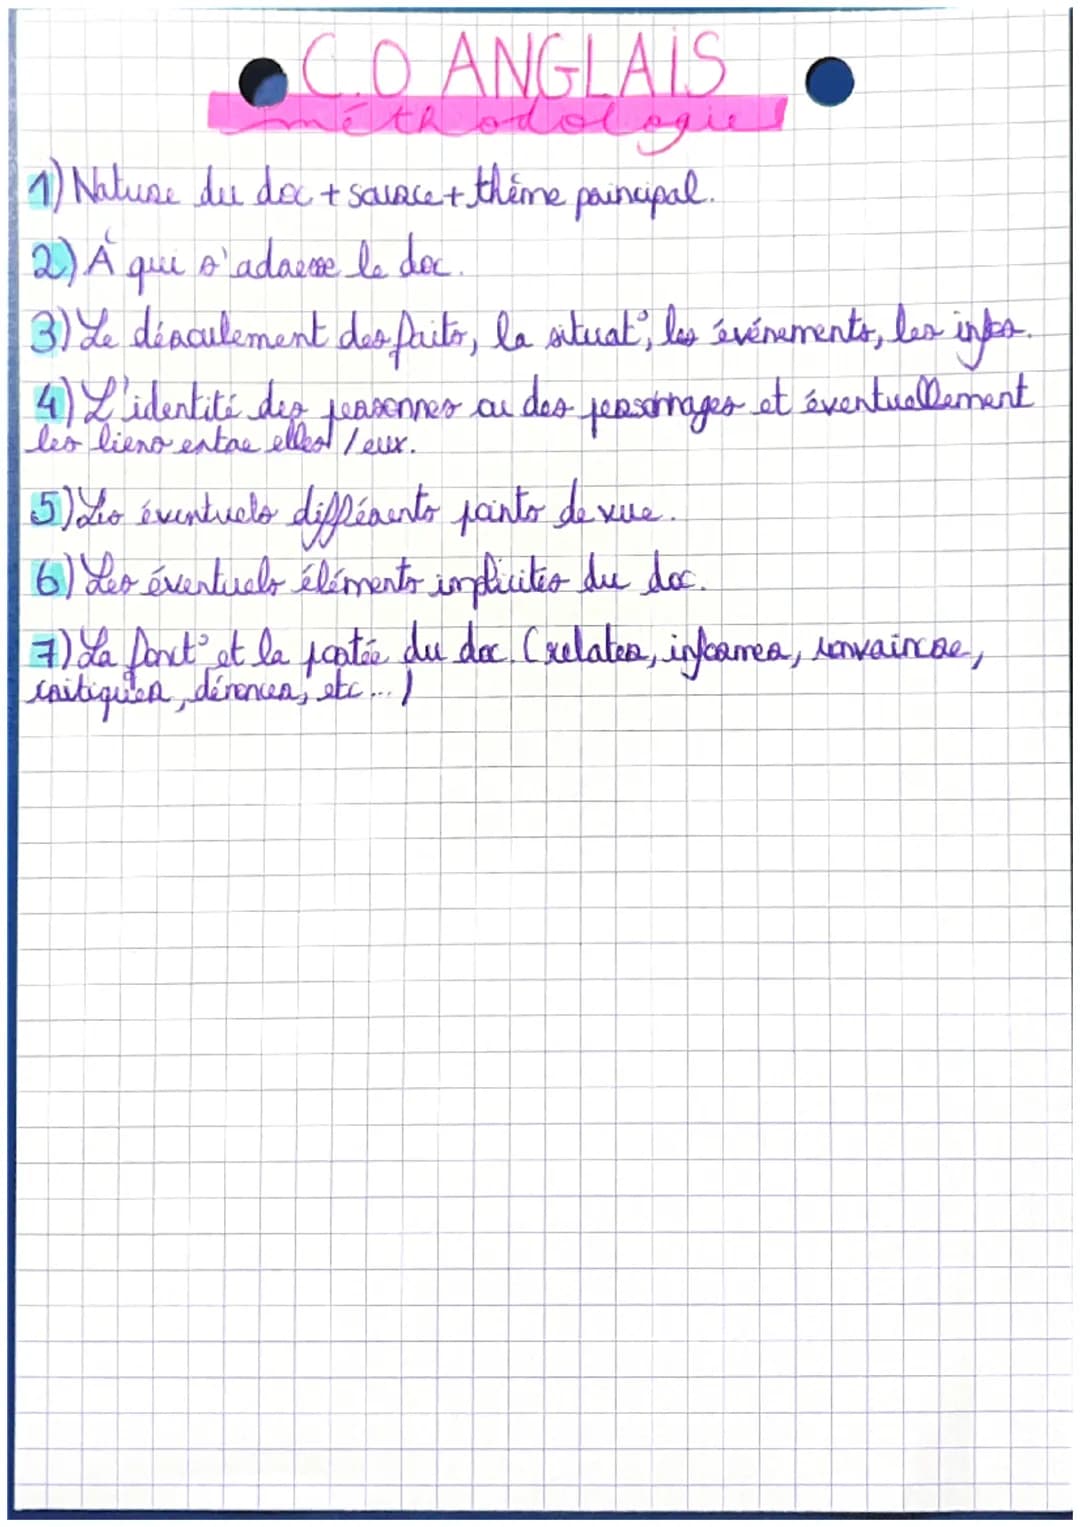 C.O ANGLAIS
méthodologie
1) Nature du doc + source + thème principal.
2) À qui s'adresse le doc.
3) Le déroulement des faits, la situat°, les événements, les infos.
4) L'identité des personnes ou des personnages et éventuellement
les liens entre elles / eux.
5) Les éventuels différents points de vue.
6) Les éventuels éléments implicites du doc.
7) La fonct° et la portée du doc. (relater, informer, convaincre,
critiquer, dénoncer, etc...)